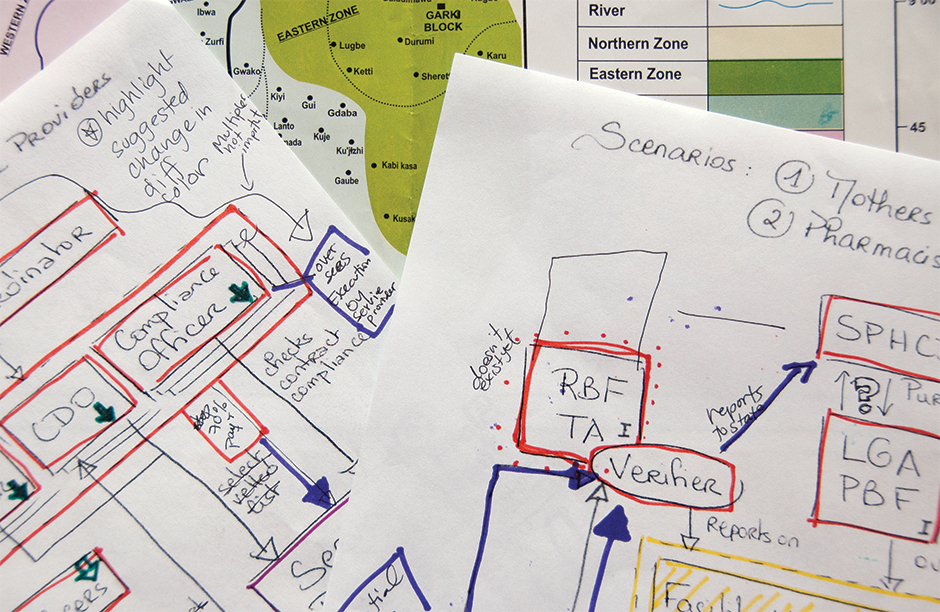 WESTERN A
Ibwa
Zurfi
Gwako
EASTERN ZONE
GARKI
BLOCK
Lugbe
Durumi
Karu
Ketti
Sheret
Kiyi
Gui
Gdaba
Lanto
Kuje
nada
Ku'jizhi
Gaube
Kabi kasa
Kusak
River
Northern Zone
Eastern Zone
45
PROVIDERS
highlight
suggested
change in
diff
color
Multiple
not
import
rdinator
Compliance
Officer
over
sees
Execution
by
service
provider
checks
contract
compliance
CDO
70%
pay!
select
vetted
list
Sp
tial
cers
Scenarios: ① Mothers
② Pharmacis
doesn't
exist yet
RBF
TA I
Verifier
reports
to state
SPHC
?
Pur
LGA
PBF
I
Reports on
Facilit